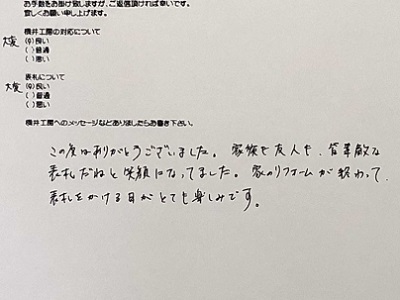 お手数をお掛け致しますが、ご返信頂ければ幸いです。
宜しくお願い申し上げます。
横井工房の対応について
大変 (○) 良い
( ) 普通
( ) 悪い
表札について
大変 (○) 良い
( ) 普通
( ) 悪い
横井工房へのメッセージなどありましたらお書き下さい。
この度はありがとうございました。家族も友人も、皆素敵な
表札だねと笑顔になってました。家のリフォームが終わって、
表札をかける日がとても楽しみです。